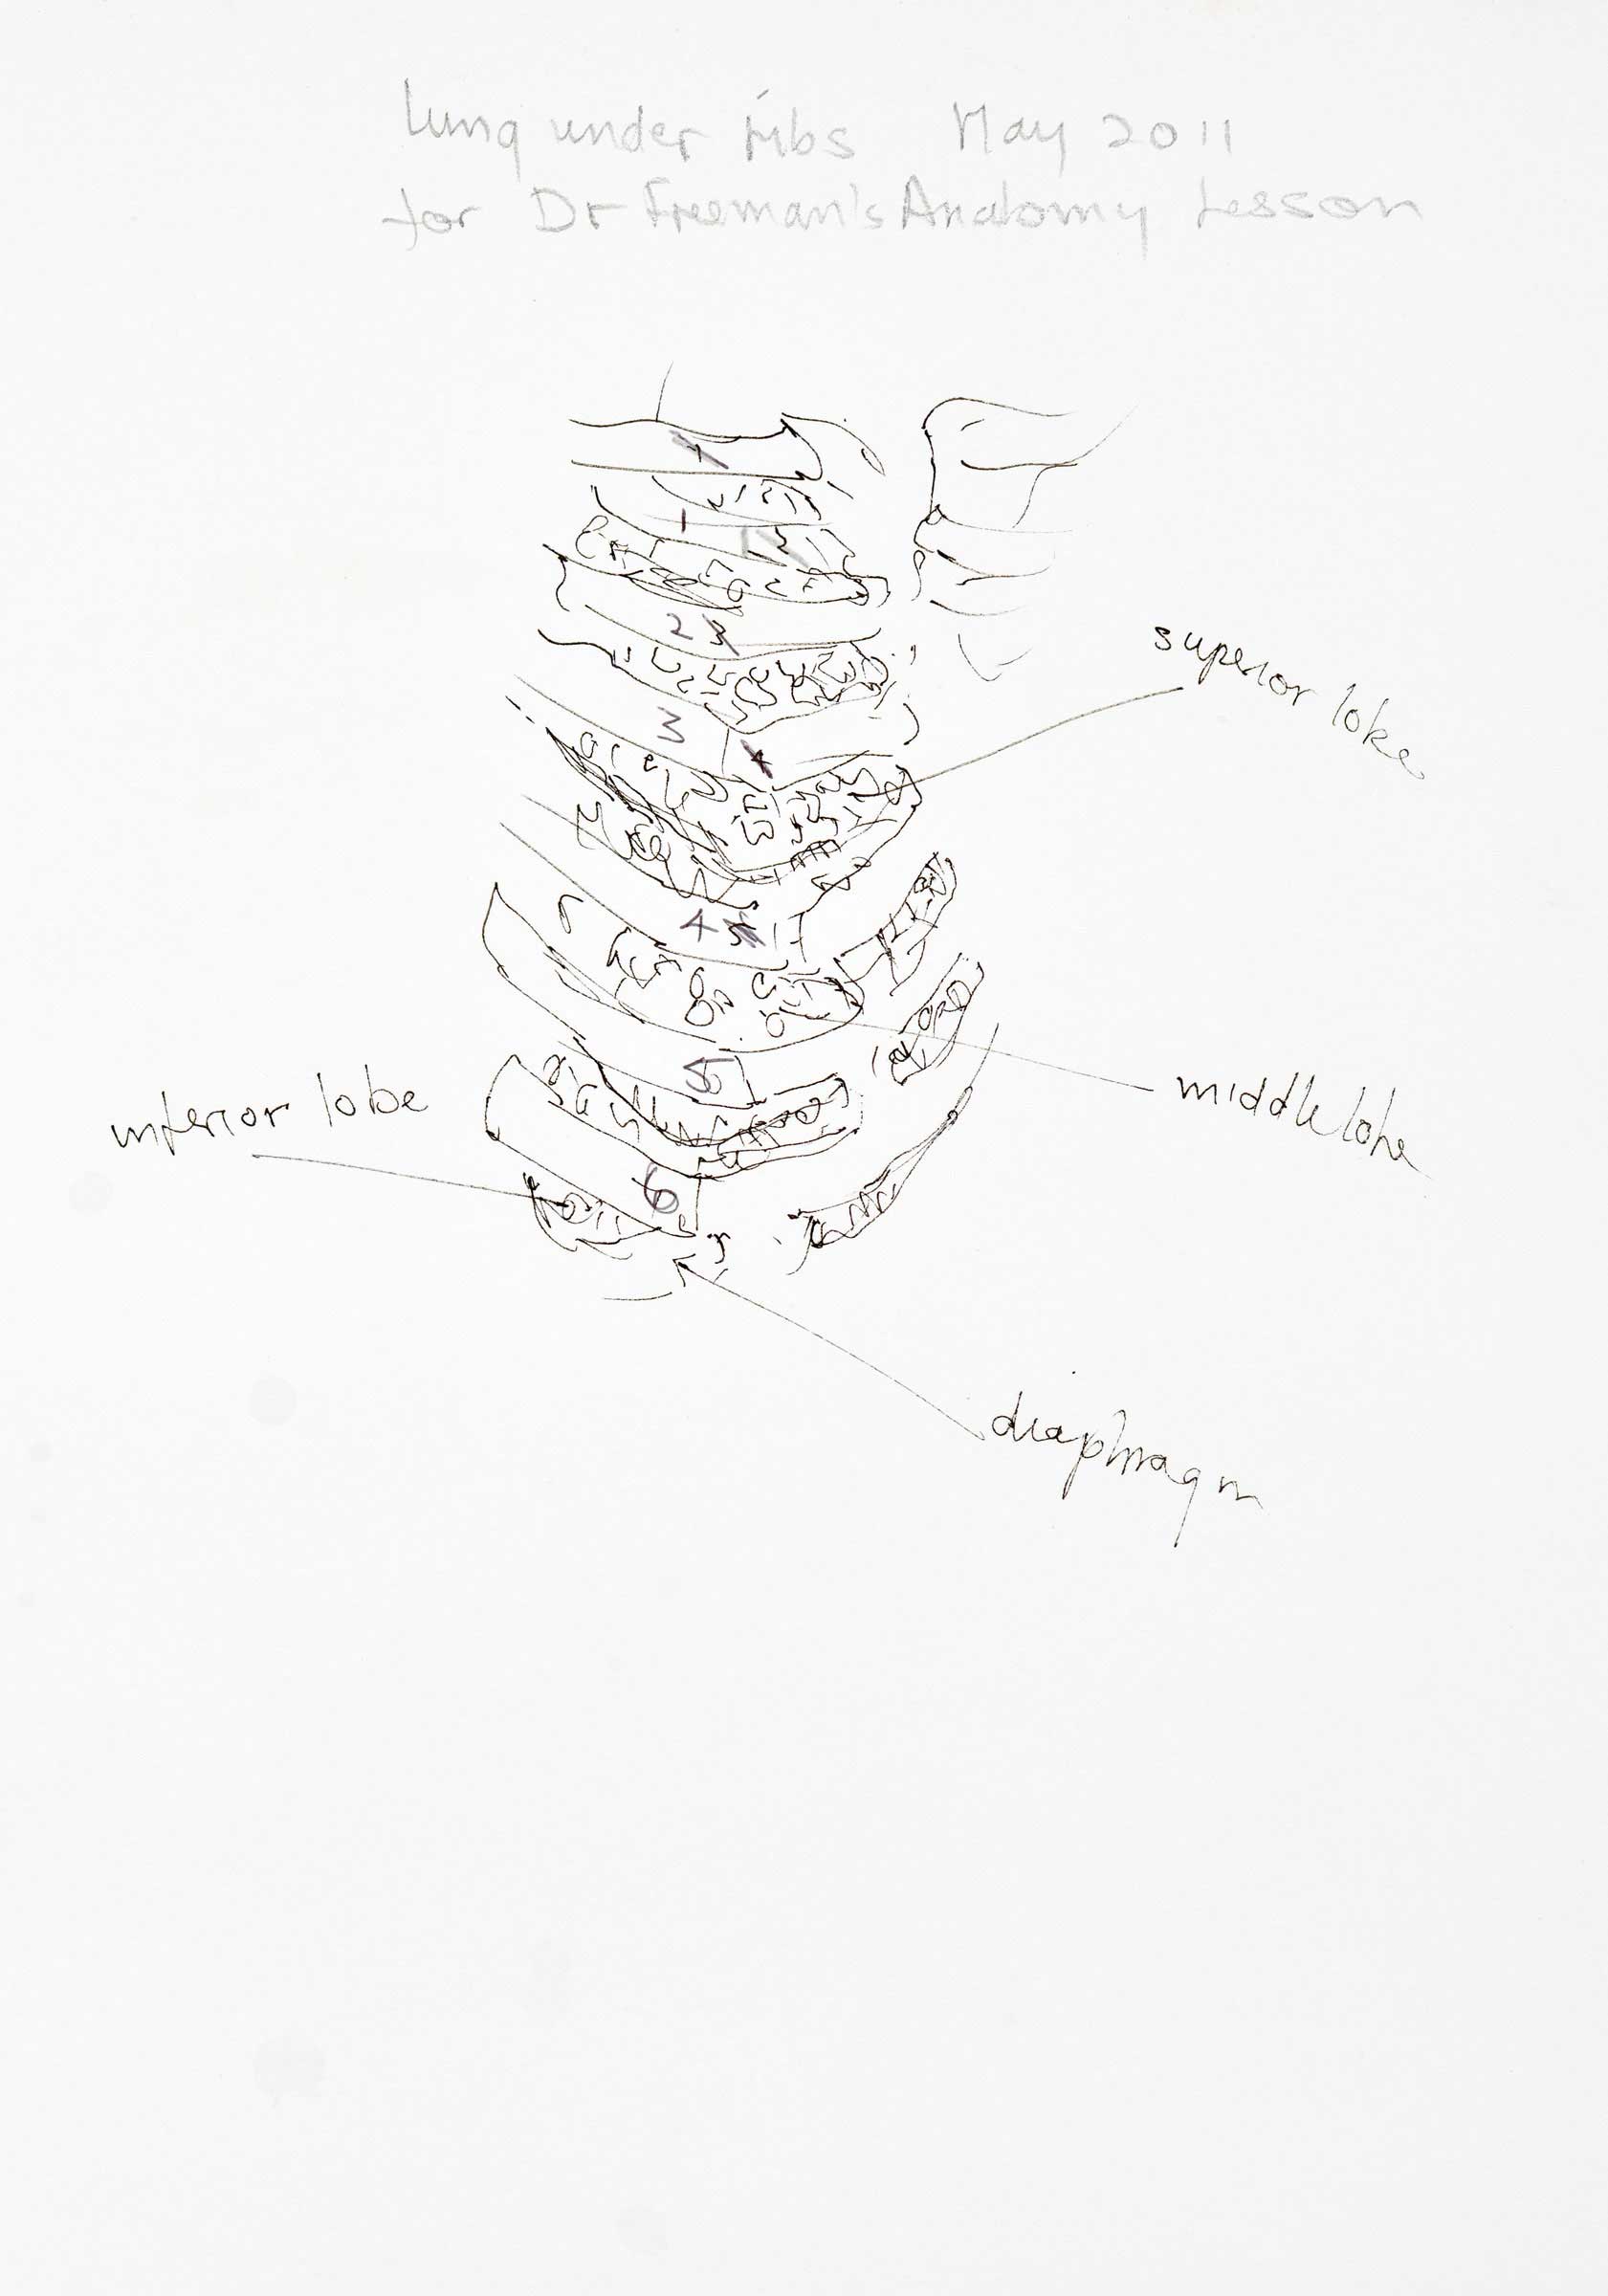 lung under ribs May 2011
for Dr Freeman's Anatomy Lesson
1
2
3
superior lobe
4
5
middle lobe
inferior lobe
6
diaphragm